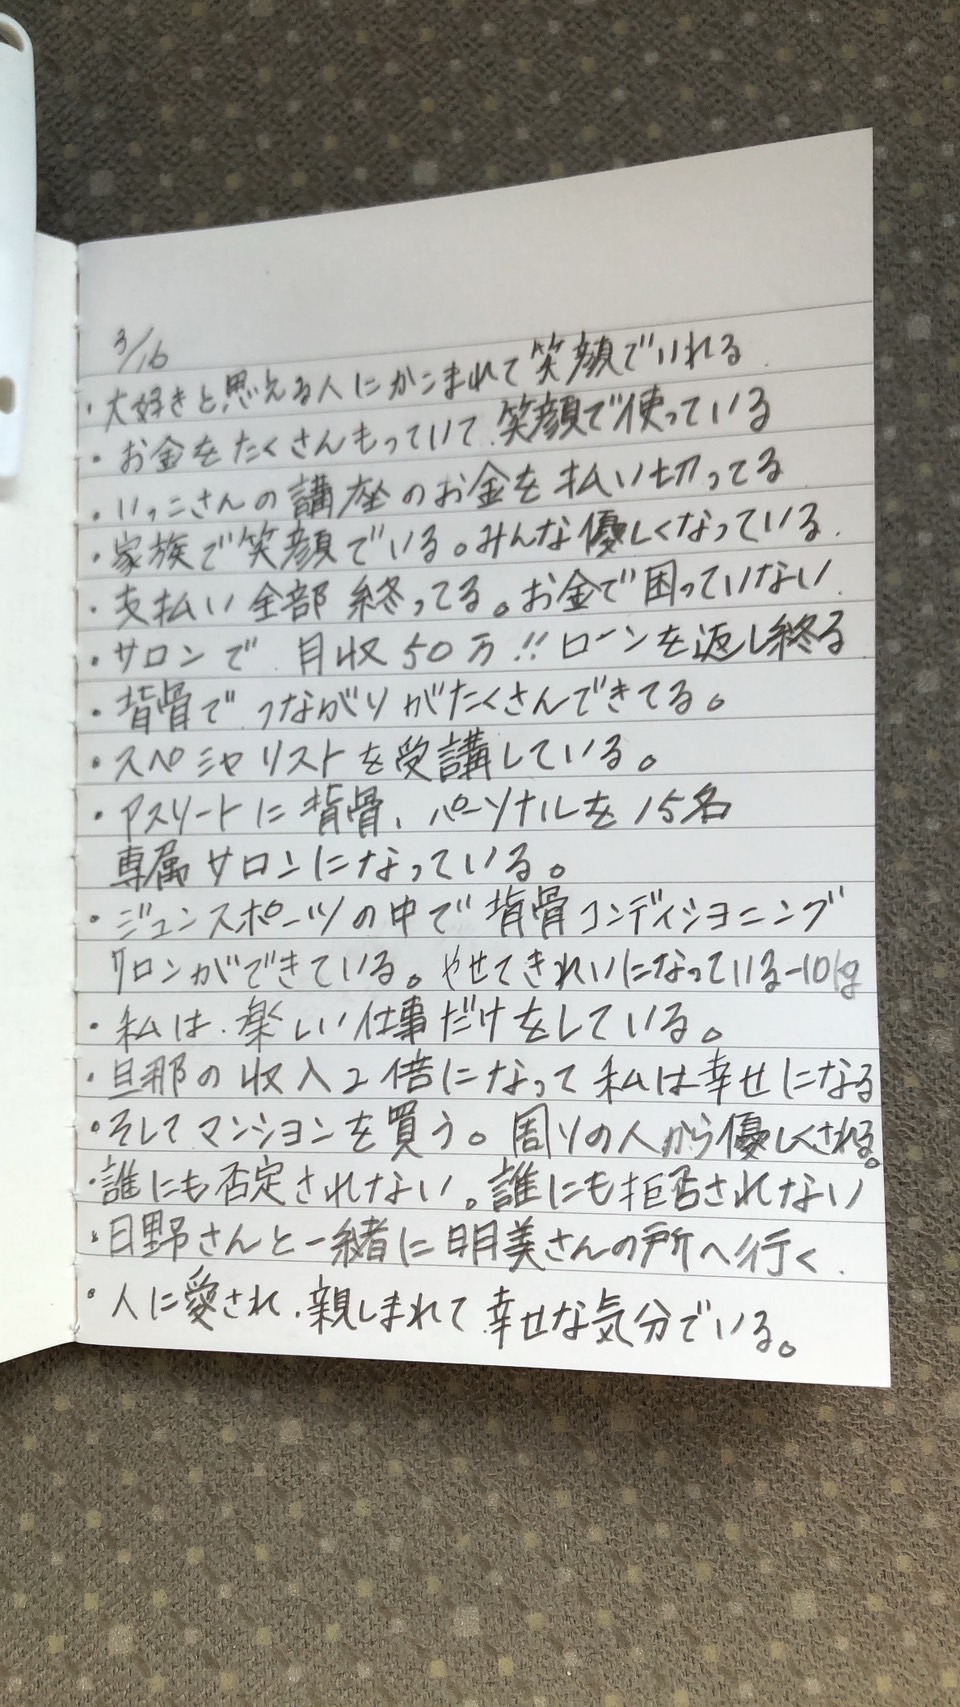 3/16
・大好きと思える人にかこまれて笑顔でいれる
・お金をたくさんもっていて、笑顔で使っている
・いっこさんの講座のお金を払い切ってる
・家族で笑顔でいる。みんな優しくなっている.
・支払い全部終ってる。お金で困っていない.
・サロンで 月収50万!!ローンを返し終る
・背骨でつながりがたくさんできてる。
・スペシャリストを受講している。
・アスリートに背骨、パーソナルを15名
専属サロンになっている。
・ジュンスポーツの中で背骨コンディショニング
サロンができている。やせてきれいになっている-10kg
・私は、楽しい仕事だけをしている。
・旦那の収入2倍になって私は幸せになる
・そしてマンションを買う。周りの人から優しくされる。
・誰にも否定されない。誰にも拒否されない
・日野さんと一緒に明美さんの所へ行く.
・人に愛され、親しまれて幸せな気分でいる。